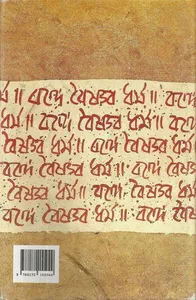 র্ম ॥ বন্দে বৈষ্ণব ধর্ম ॥ বন্দে
ধর্ম ॥ বন্দে বৈষ্ণব ধর্ম ॥ ব
বন্দে বৈষ্ণব ধর্ম ॥ বন্দে বৈ
বৈষ্ণব ধর্ম ॥ বন্দে বৈষ্ণব
বন্দে বৈষ্ণব ধর্ম ॥ বন্দে